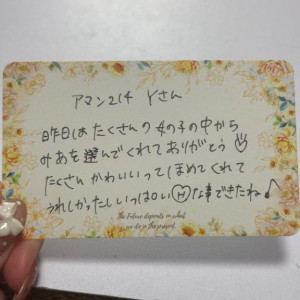 アマン214 Yさん
昨日はたくさんの女の子の中から
みあを選んでくれてありがとう♡
たくさんかわいいってほめてくれて
うれしかったしいっぱいHな事できたね♪
The Future depends on what
we do in the present.